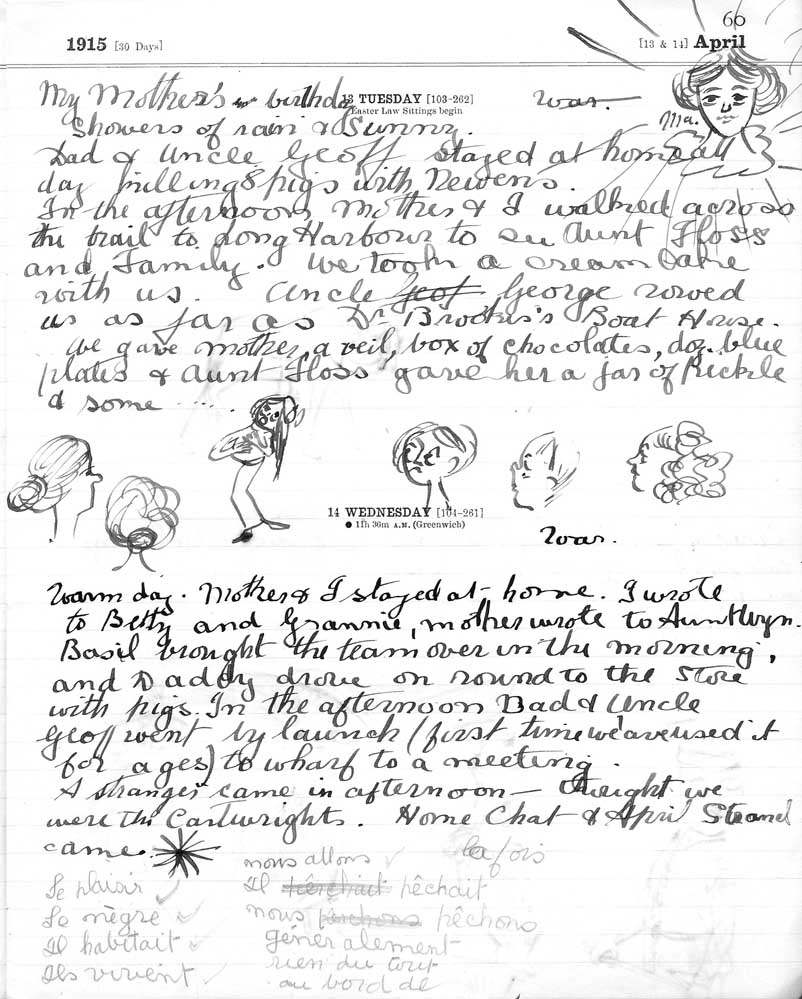 60
1915 [30 Days] [13 & 14] April
My Mother's birthday 13 TUESDAY [103-262] War.
Easter Law Sittings begin
Ma.
Showers of rain & Sunny.
Dad & Uncle Geoff stayed at home all
day killing 8 pigs with Newens.
In the afternoon, Mother & I walked across
the trail to Long Harbour to see Aunt Floss
and Family. We took a cream cake
with us. Uncle Geof George rowed
us as far as Dr Brookes's Boat House.
We gave mother, a veil, box of chocolates, doz. blue
plates & Aunt Floss gave her a jar of Pickle
& some ....
14 WEDNESDAY [104-261]
● 11h 36m A.M. (Greenwich)
War.
Warm day. Mother & I stayed at home. I wrote
to Betty and Grannie, mother wrote to Aunt Wyn.
Basil brought the team over in the morning,
and Daddy drove on round to the Store
with pigs. In the afternoon Dad & Uncle
Geoff went by launch (first time we'ave used it
for ages) to wharf to a meeting.
A stranger came in afternoon — thought we
were the Cartwrights. Home Chat & April Strand
came.
nous allons la fois
Le plaisir Il pêchait
Le nègre nous pêchons
Il habitait géneralement
Ils vivent rien du tout
au bord de